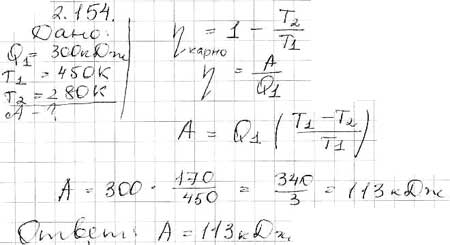 2.154.
Дано:
Q₁ = 300кДж
T₁ = 450К
T₂ = 280К
A - ?
η карно = 1 - T₂/T₁
η = A/Q₁
A = Q₁ (T₁-T₂/T₁)
A = 300 · 170/450 = 340/3 = 113 кДж
Ответ: A = 113 кДж.